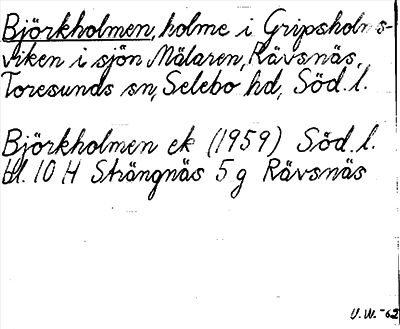 Björkholmen, holme i Gripsholms-
viken i sjön Mälaren, Rävsnäs,
Toresunds sn, Selebo hd, Söd. l.
Björkholmen ek (1959) Söd. l.
bl. 10 H Strängnäs 5 g Rävsnäs
U.W.-62